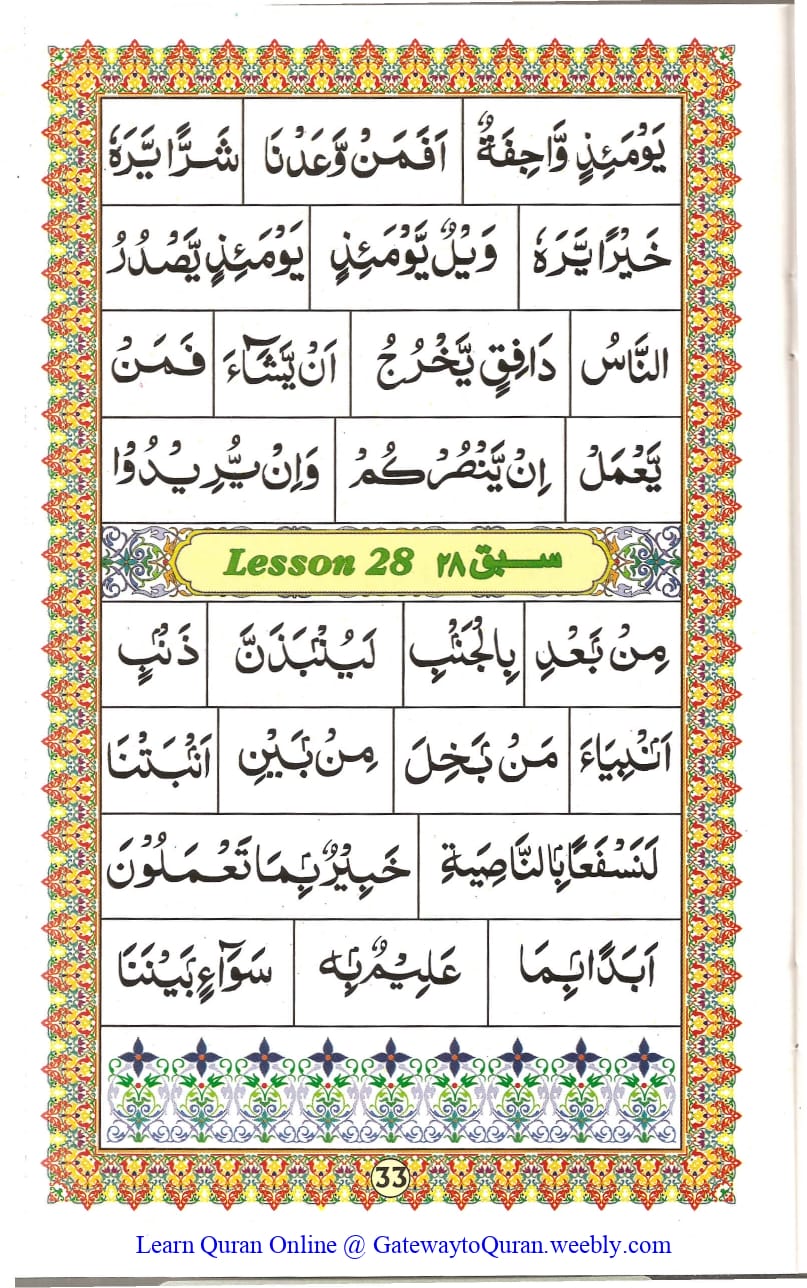 يَوْمَئِذٍ وَّاجِفَةٌ اَفَمَنْ وَّعَدْنَا شَرًّا يَّرَهٗ
خَيْرًا يَّرَهٗ وَيْلٌ يَّوْمَئِذٍ يَوْمَئِذٍ يَّصْدُرُ
النَّاسُ دَافِقٍ يَّخْرُجُ اَنْ يَّشَآءَ فَمَنْ
يَّعْمَلْ اِنْ يَّنْصُرْكُمْ وَاِنْ يُّرِيْدُوْا
Lesson 28 سبق ٢٨
مِنْۢ بَعْدِ بِالْجَنْۢبِ لَيُنْۢبَذَنَّ ذَنْۢبٍ
اَنْۢبِيَاءَ مَنْۢ بَخِلَ مِنْۢ بَيْنِ اَنْۢبَتْنَا
لَنَسْفَعًاۢ بِالنَّاصِيَةِ خَبِيْرٌۢ بِمَا تَعْمَلُوْنَ
اَبَدًاۢ بِمَا عَلِيْمٌۢ بِهٖ سَوَآءٍۢ بَيْنَنَا
33
Learn Quran Online @ GatewaytoQuran.weebly.com